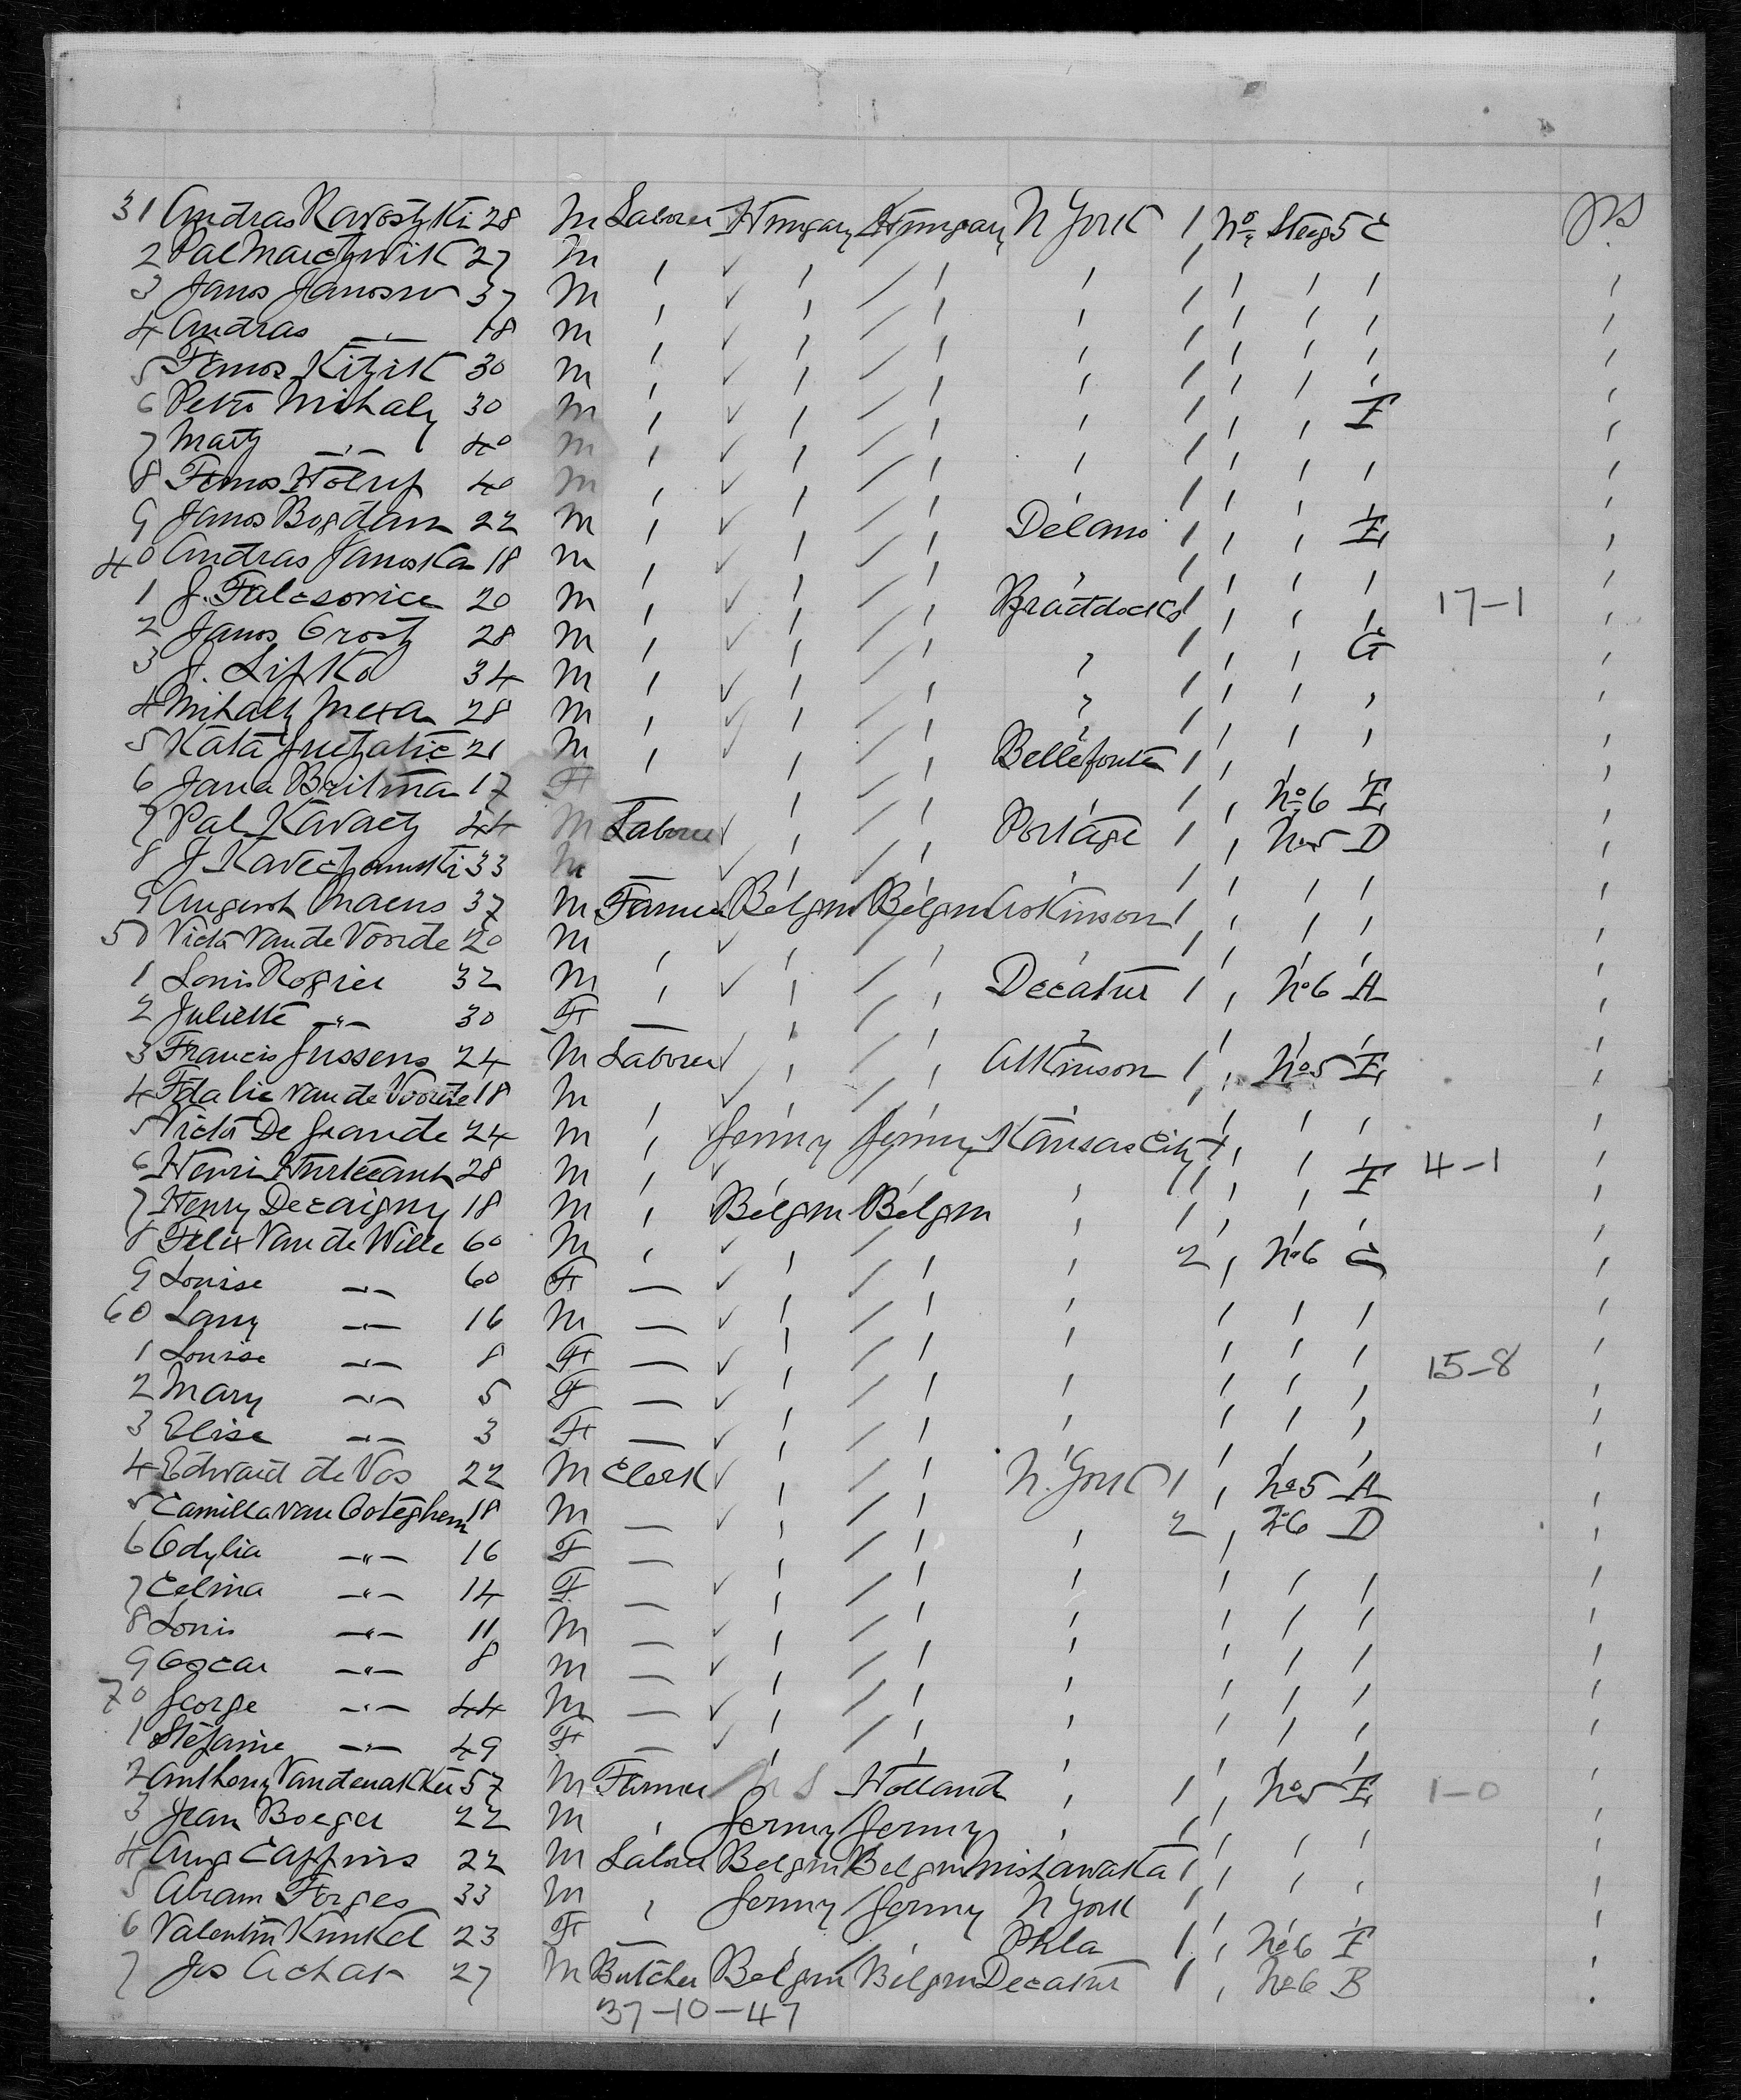 31 Andras Ravostzki 28 M Laborer Hungary Hungary N York 1 No Steeg 5 C PS
2 Pal 27 M " ✓ " / " " 1 " " "
3 Janos Janosso 37 M " ✓ " / " " 1 " " "
4 Andras —"— 18 M " ✓ " / " " 1 " " "
5 Kitzik 30 M " ✓ " / " " 1 " " "
6 Petro Mihaly 30 M " ✓ " / " " 1 " " F
7 Matz —"— 40 M " ✓ " / " " 1 " " "
8 40 M " ✓ " / " " 1 " " "
9 Janos Bogdan 22 M " ✓ " / " Delano 1 " " E
40 Andras Janoska 18 M " ✓ " / " " 1 " " "
1 J. Falcsovice 20 M " ✓ " / " Braddocks 1 " " " 17-1
2 Janos Orosz 28 M " ✓ " / " " 1 " " G
3 J. Lipko 34 M " ✓ " / " " 1 " " "
4 Mihaly Mexa 28 M " ✓ " / " " 1 " " "
5 Kata 21 M " ✓ " / " Bellefonte 1 " " "
6 Jana Britma 17 F " / " " 1 " No 6 E
7 Pal Kavacz 44 M Laborer ✓ " / " Portage 1 " No 5 D
8 J. 33 M — ✓ " / " " 1 " " "
9 August Maens 37 M Farmer Belgm Belgm Atkinson 1 " " "
50 Victor Van de Voorde 20 M " ✓ " / " " 1 " " "
1 Louis Rogier 32 M " ✓ " / " Decatur 1 " No 6 A
2 Juliette —"— 30 F — " / " " " " "
3 Francis Jussens 24 M Laborer ✓ " / " Atkinson 1 " No 5 E
4 Van de Voorde 18 M " " / " " 1 " " "
5 Victor De Grande 24 M " Germy Germy Kansas City 1 " " "
6 Henri 28 M " ✓ " / " " 1 " " F 4-1
7 Henry Decaigny 18 M " Belgm Belgm " 1 " " "
8 Felix Van de Wille 60 M " ✓ " / " " 2 " No 6 C
9 Louise —"— 60 F — ✓ " / " " " " "
60 Lany —"— 16 M — ✓ " / " " " " "
1 Louise —"— 8 F — ✓ " / " " " " " 15-8
2 Mary —"— 5 F — ✓ " / " " " " "
3 Elise —"— 3 F — ✓ " / " " " " "
4 Edward de Vos 22 M Clerk ✓ " / " N. York 1 " No 5 A
5 Camilla Van Ooteghem 18 M — ✓ " / " " 2 " 26 D
6 Odylia —"— 16 F — " / " " " " "
7 Celina —"— 14 F — ✓ " / " " " " "
8 Louis —"— 11 M — ✓ " / " " " " "
9 Oscar —"— 8 M — ✓ " / " " " " "
70 George —"— 44 M — ✓ " / " " " " "
1 Stefanie —"— 49 F — ✓ " / " " " " "
2 Anthony Vandenakker 57 M Farmer U S Holland " 1 " No 5 E 1-0
3 Jean Boeger 22 M " Germy Germy " 1 " " "
4 Aug Cappins 22 M Laborer Belgm Belgm Mishawaka 1 " " "
5 Abram Forges 33 M " Germy Germy N York 1 " " "
6 Valentin Kunkel 23 F " / " Phla 1 " No 6 F
7 Jos Achak 27 M Butcher Belgm Belgm Decatur 1 " No 6 B
37-10-47